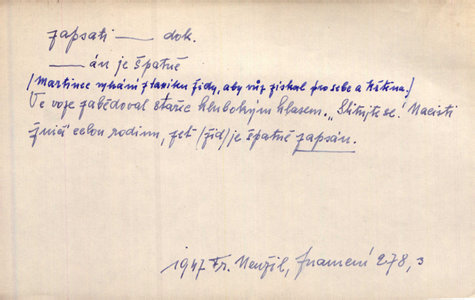 zapsati — dok.
— án je špatně
(Martinec vyhání z taxiku židy, aby vůz získal pro sebe a Křtěna.)
Ve voze zabědoval stařec hlubokým hlasem. „Slitujte se! Nacisti
zničí celou rodinu, zeť (žid) je špatně zapsán.
1947 Fr. Neužil, Znamení 278, 3